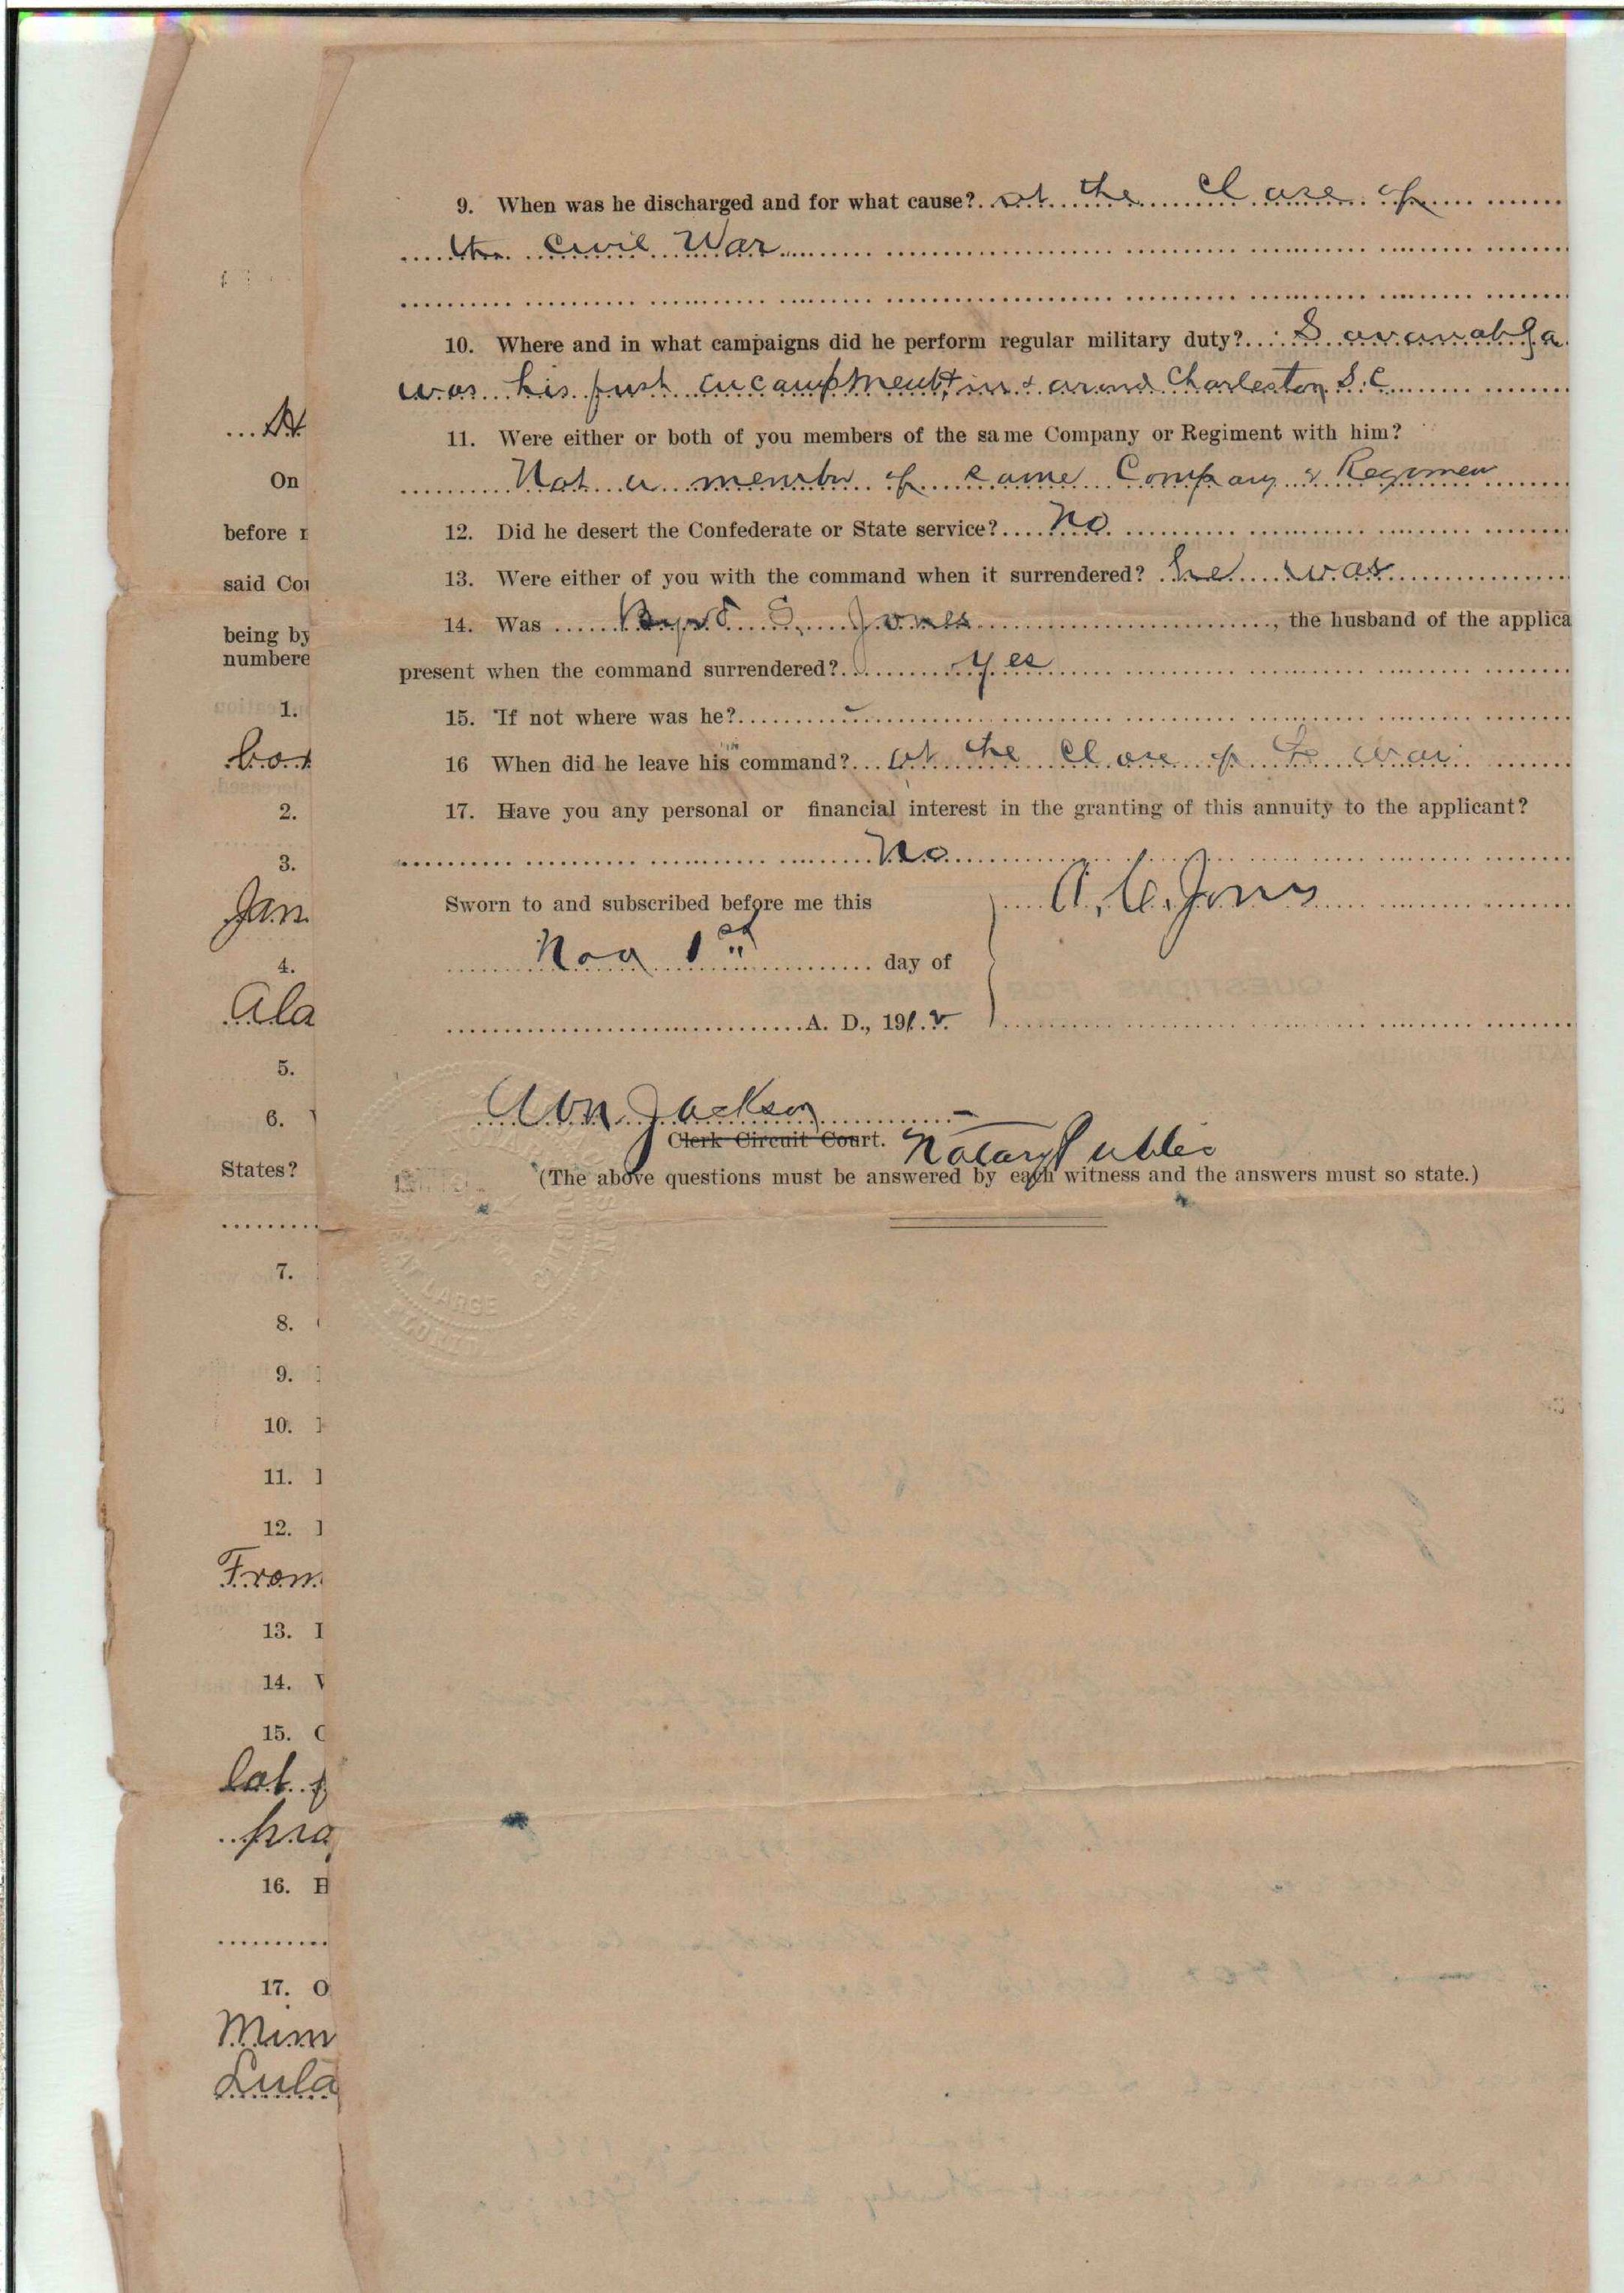 9. When was he discharged and for what cause? at the close of
the Civil War
10. Where and in what campaigns did he perform regular military duty? Savanah Ga
was his first encampment, in & around Charleston S.C
11. Were either or both of you members of the same Company or Regiment with him?
Not a member of same Company & Regimen
12. Did he desert the Confederate or State service? No
13. Were either of you with the command when it surrendered? he was
14. Was S. Jones, the husband of the applica
present when the command surrendered? Yes
15. If not where was he?
16 When did he leave his command? at the close of the war
17. Have you any personal or financial interest in the granting of this annuity to the applicant?
No
Sworn to and subscribed before me this
A. C. Jones
Nov 1st day of
A. D., 191.2
Jackson
Clerk Circuit Court. Notary Public
(The above questions must be answered by each witness and the answers must so state.)
NOTARY PUBLIC
AT LARGE
FLORIDA
On
before
said Co
being by
numbere
1.
2.
3.
Jan
4.
Ala
5.
6.
States?
7.
8.
9.
10.
11.
12.
From
13.
14.
15.
16.
17. O
Mim
Lula